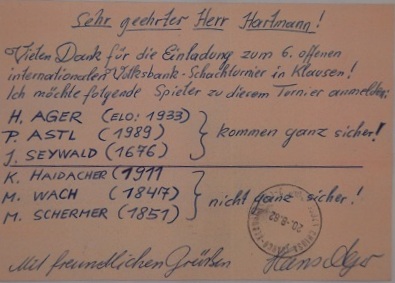 Sehr geehrter Herr Hartmann!
Vielen Dank für die Einladung zum 6. offenen
internationalen Volksbank-Schachturnier in Klausen!
Ich möchte folgende Spieler zu diesem Turnier anmelden:
H. AGER (ELO: 1933)
P. ASTL (1989) kommen ganz sicher!
J. SEYWALD (1676)
K. HAIDACHER (1911
M. WACH (1847) nicht ganz sicher!
M. SCHERMER (1851)
Mit freundlichen Grüßen Hans Ager